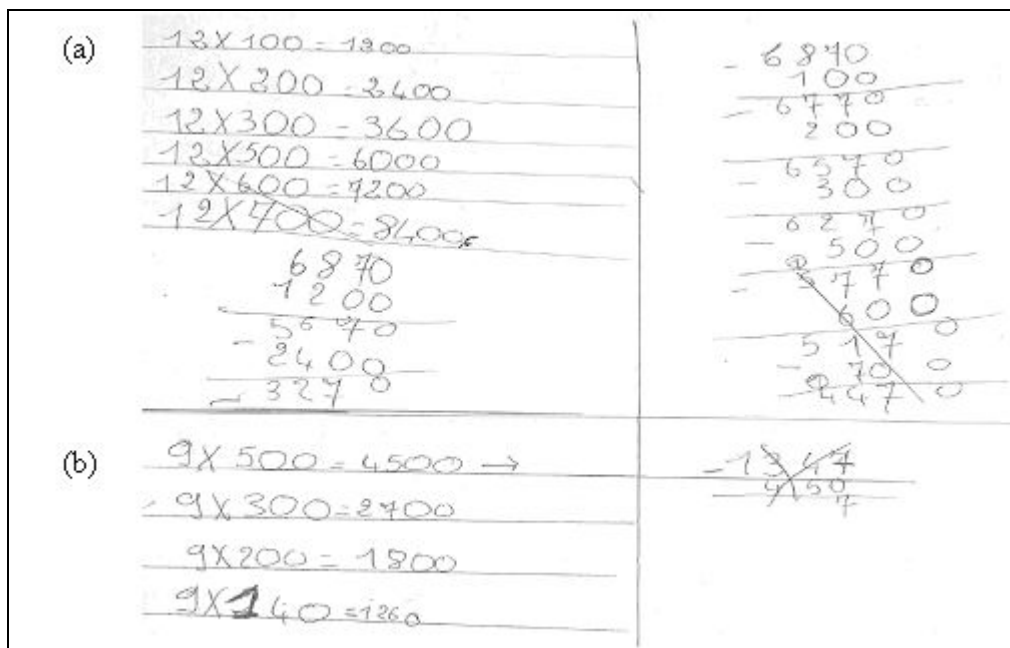 (a)
12X100=1200
12X200=2400
12X300=3600
12X500=6000
12X600=7200
12X700=8400
6870
1200
5670
- 2400
- 3270
- 6870
100
- 6770
200
6570
- 300
6270
- 500
- 5770
600
5170
- 700
4470
(b)
9X500=4500 →
- 9X300=2700
9X200=1800
9X140=1260
- 1347
7